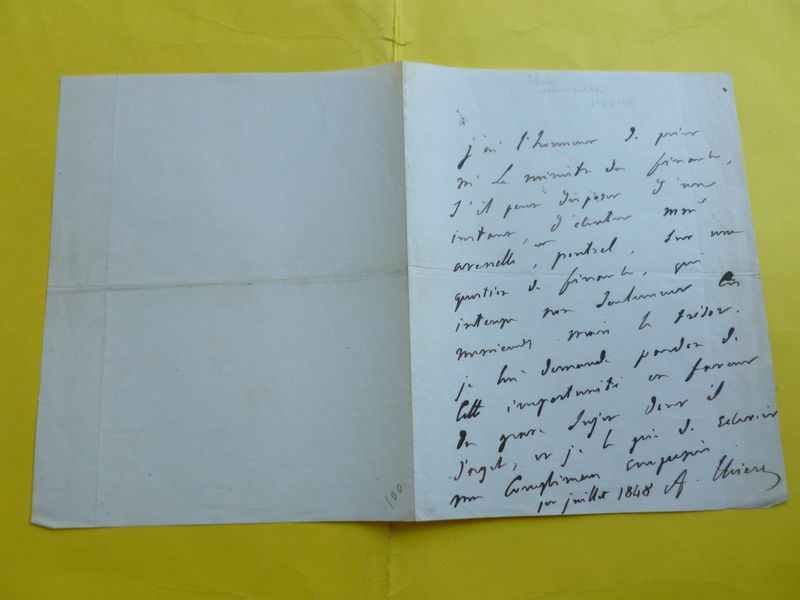 Thiers
j'ai l'honneur de prier
M. le ministre des finances,
s'il peut disposer d'un
instant, d'écouter MM
et poutrel, sur une
question de finances, qui
intéresse non seulement ces
messieurs mais le trésor.
je lui demande pardon de
cette importunité en faveur
du grave sujet dont il
s'agit, et je le prie de recevoir
mes compliments empressés
A. Thiers
1er juillet 1848
100